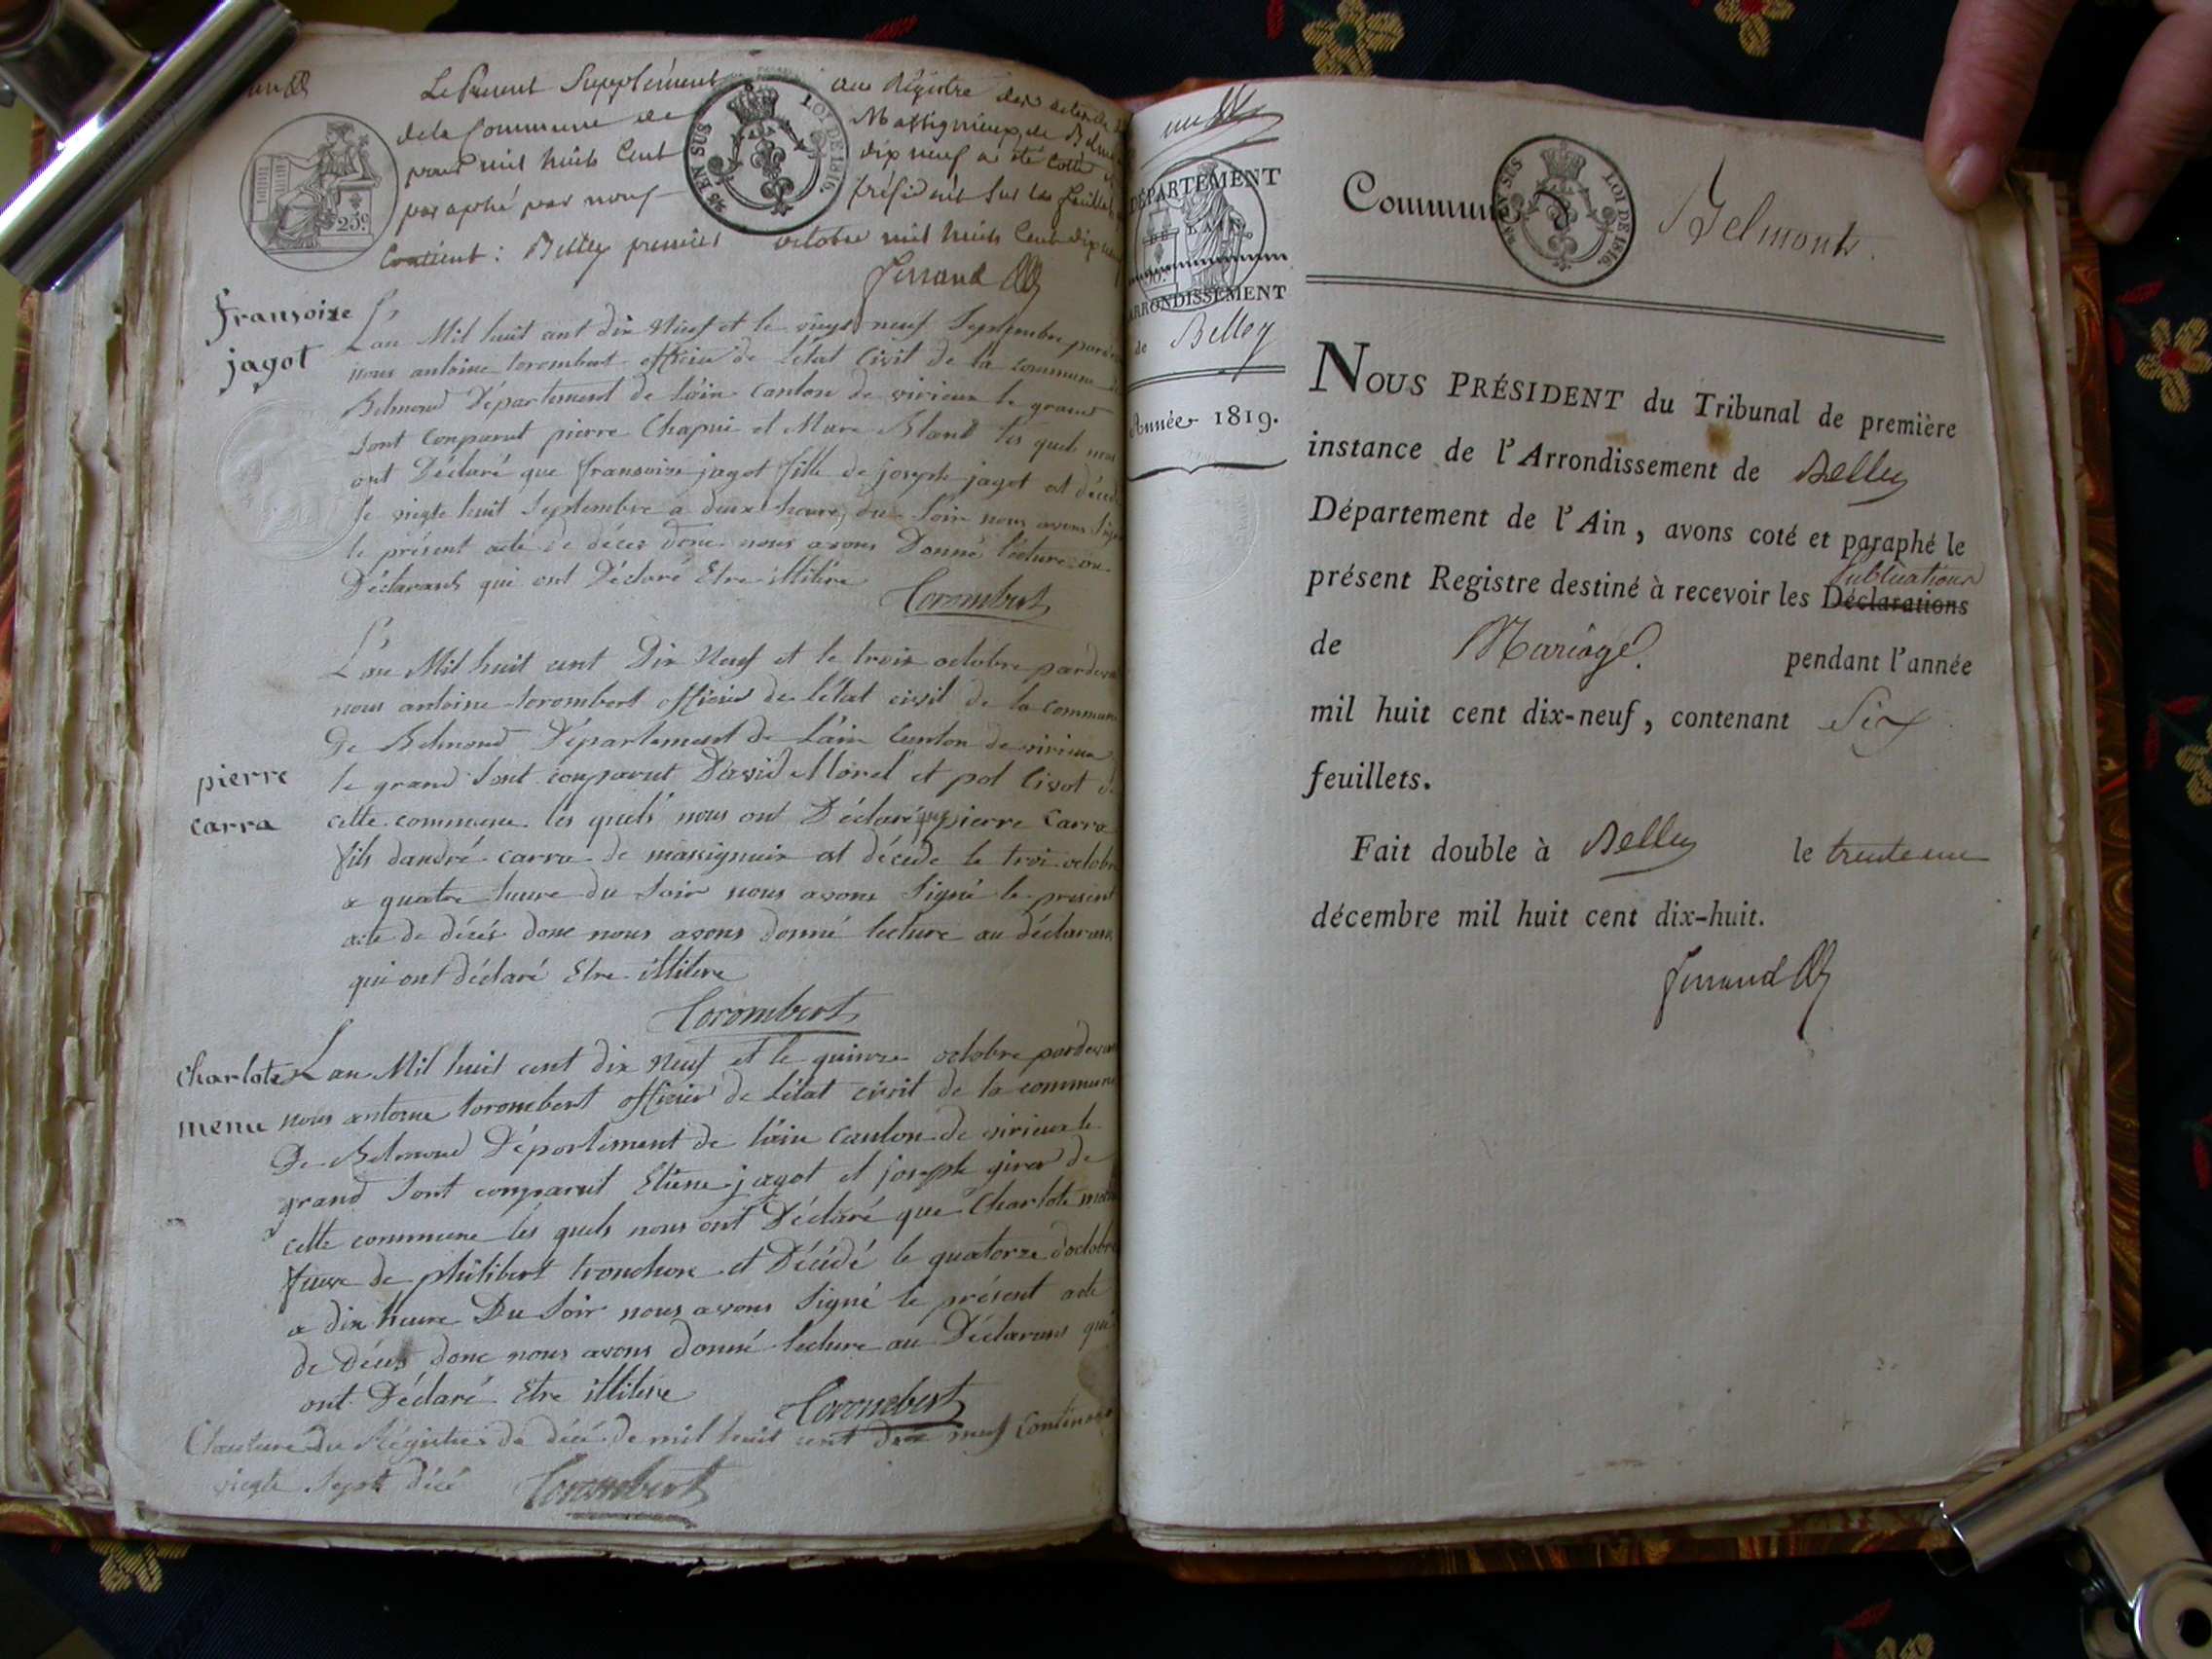 Le Présent Supplément au Régistre des actes de
de la Commune de Massignieux de Belmont
pour mil huit Cent dix neuf a été Coté et
paraphé par nous président Sur les feuillets
Contient : Belley premier octobre mil huit Cent dix neuf
Ferrand
25 EN SUS
LOI DE 1816.
25c.
fransoise
jagot
Lan Mil huit cent dix Neuf et le vingt neuf Septembre par
nous antoine torombert officier de Létat Civil de la commune
Belmond Département de Lain Canton de virieux le grand
Sont Conparut pierre Chapui et Marc Bland les quels nous
ont Déclaré que fransoise jagot fille de joseph jagot est décédé
le vingte huit Septembre a deux heure du Soir nous avons Signé
le présent acte de décés donc nous avons Donné lecture au
Déclarans qui ont Déclaré Etre illitére
Torombert
Lan Mil huit cent Dix Neuf et le trois octobre pardevan
nous antoine torombert officier de Létat civil de la commune
De Belmond Département de Lain Canton de virieux
le grand Sont conparut David Morel et pol Civot de
pierre
carra
cette commune les quels nous ont Déclaré que pierre Carra
fils dandré carra de massignieux est décédé le troi octobre
a quatre heure du Soir nous avons Signé le present
acte de décés donc nous avons donné lecture au déclarans
qui ont déclaré Etre illitere
Torombert
charlote
menu
Lan Mil huit cent dix Neuf et le quinze octobre pardevan
nous antoine torombert officier de Létat civil de la commune
De Belmond Département de Lain Canton de virieux le
grand Sont conparut Etiene jagot et joseph girer de
cette commune les quels nous ont Déclaré que Charlote menu
fame de philibert tronchon et Décédé le quatorze doctobre
a dix heure Du Soir nous avons Signé le présent acte
de Décés donc nous avons donné lecture au Déclarans qui
ont Déclaré Etre illitere
Torombert
Clauture du Régistre de décé de mil huit cent dix neuf Contenant
vingte Sept décé
Torombert
DÉPARTEMENT
DE L'AIN
ARRONDISSEMENT
de Belley
Année 1819.
Commune de Belmont.
25 EN SUS
LOI DE 1816.
NOUS PRÉSIDENT du Tribunal de première
instance de l'Arrondissement de Belley
Département de l'Ain, avons coté et paraphé le
Publications
présent Registre destiné à recevoir les Déclarations
de Mariage pendant l'année
mil huit cent dix-neuf, contenant Six
feuillets.
Fait double à Belley le trente un
décembre mil huit cent dix-huit.
Ferrand